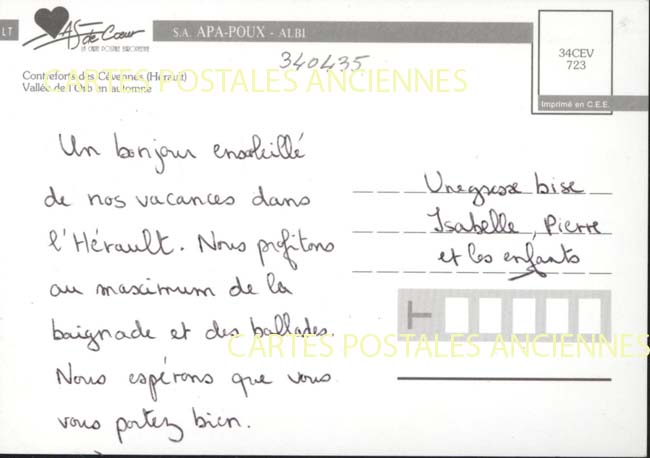 LT
AS de Cœur
LA CARTE POSTALE EUROPÉENNE
S.A. APA-POUX - ALBI
340435
34CEV
723
Imprimé en C.E.E.
Contreforts des Cévennes (Hérault)
Vallée de l'Orb en automne
CARTES POSTALES ANCIENNES
Un bonjour ensoleillé
de nos vacances dans
l'Hérault. Nous profitons
au maximum de la
baignade et des ballades.
Nous espérons que vous
vous portez bien.
Une grosse bise
Isabelle, Pierre
et les enfants
CARTES POSTALES ANCIENNES